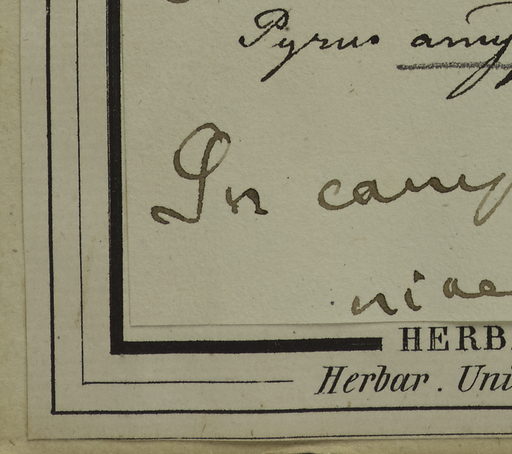 Pyrus amy
In camp
niae
HERB
Herbar. Uni